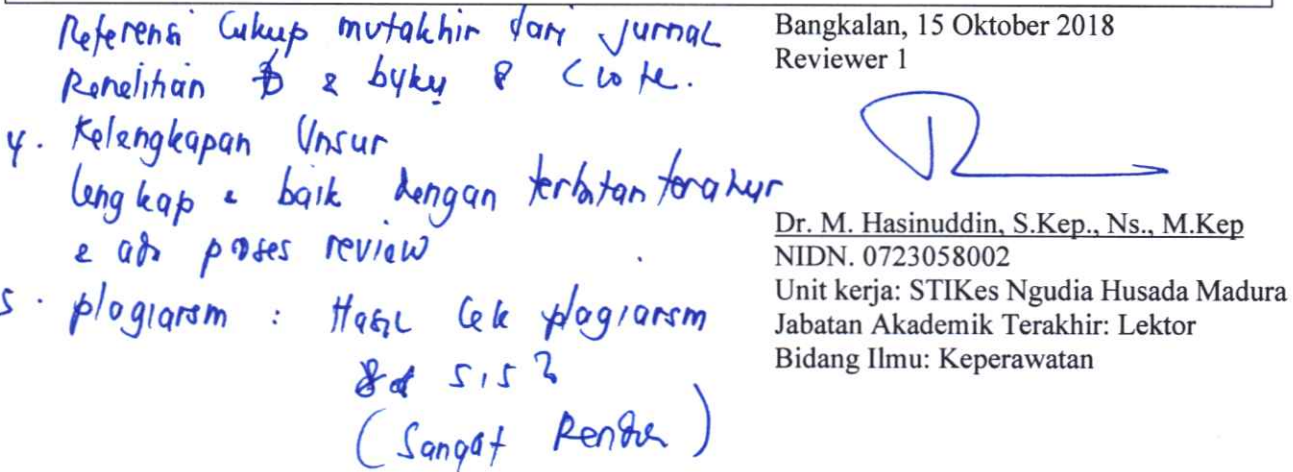 Referensi Cukup mutakhir dari Jurnal
Penelitian & buku 8
4. Kelengkapan Unsur
lengkap & baik dengan terbitan teratur
& ada proses review
5. plagiarsm : Hasil Cek plagiarsm
(Sangat Rendah)
Bangkalan, 15 Oktober 2018
Reviewer 1
Dr. M. Hasinuddin, S.Kep., Ns., M.Kep
NIDN. 0723058002
Unit kerja: STIKes Ngudia Husada Madura
Jabatan Akademik Terakhir: Lektor
Bidang Ilmu: Keperawatan